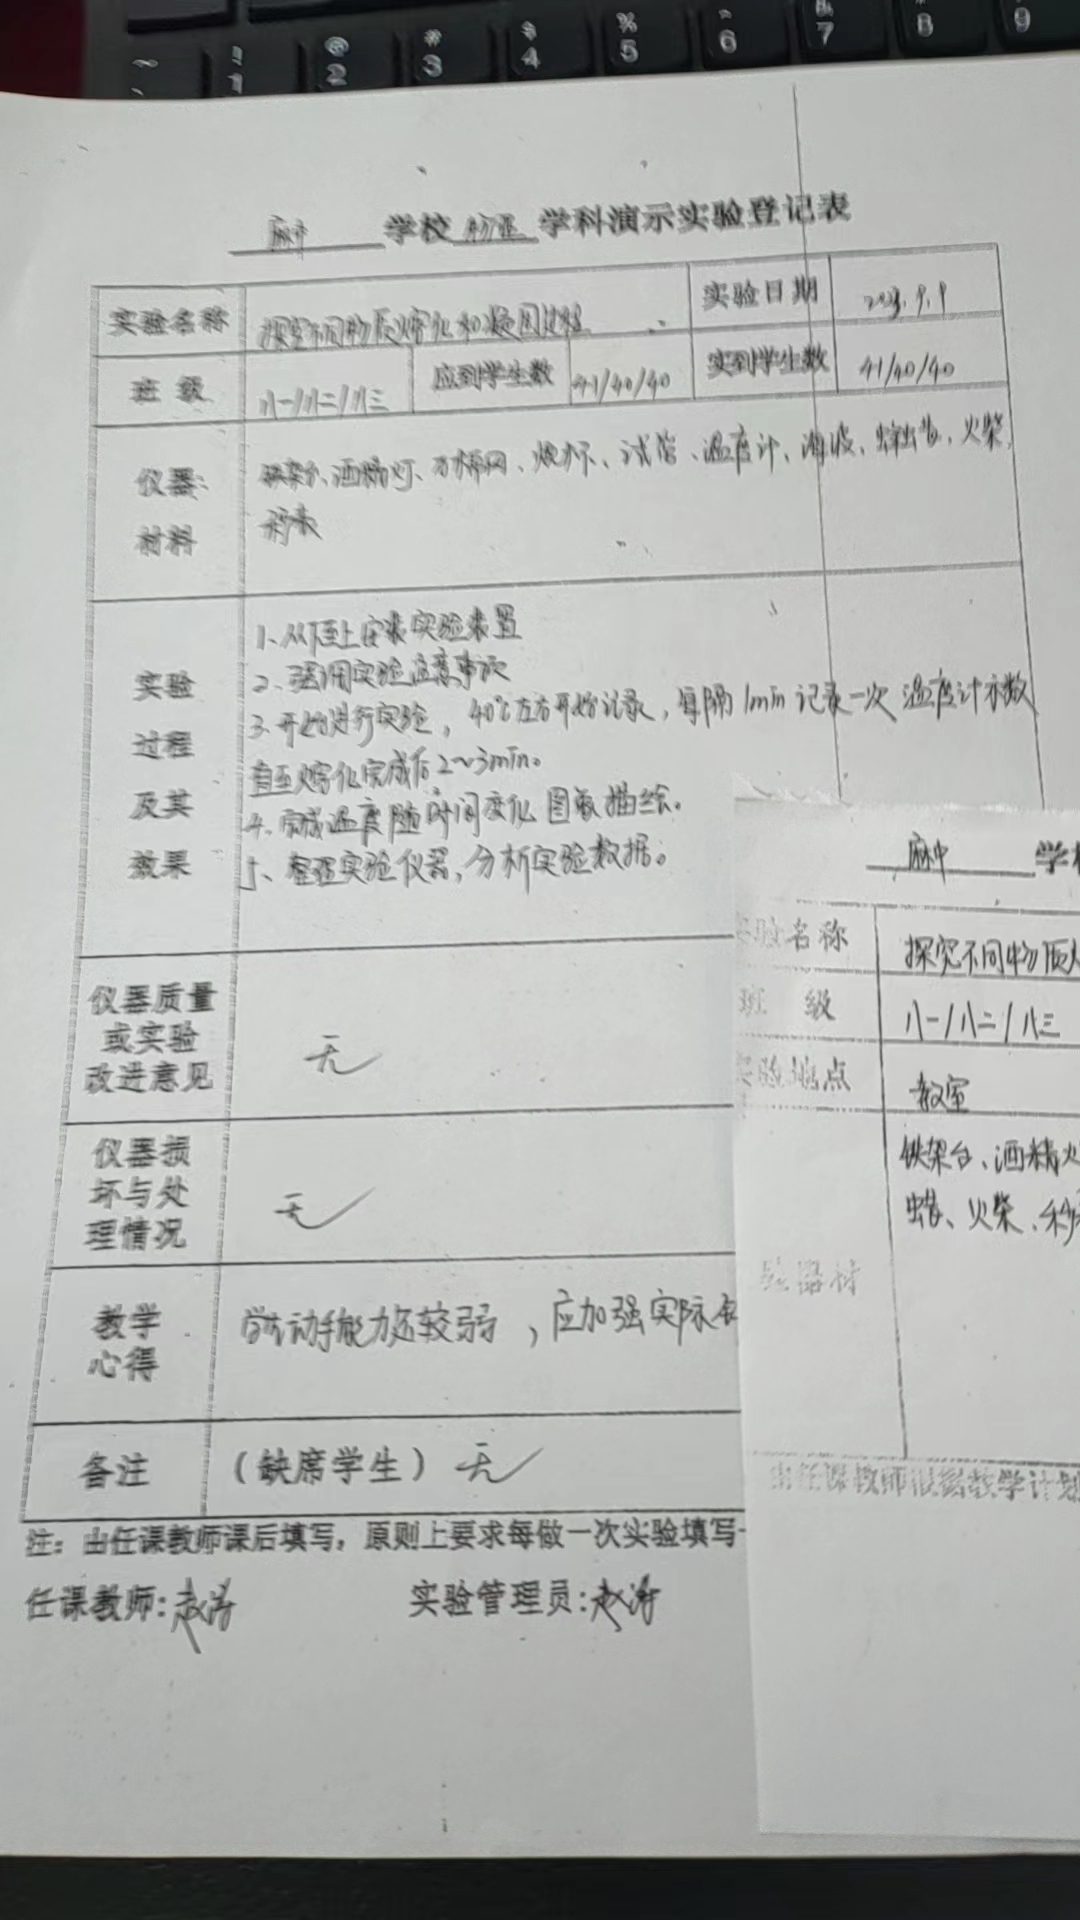 ~ ! 1 @ 2 # 3 $ 4 % 5 6 & 7 * 8 9
麻中 学校 物理 学科演示实验登记表
实验名称 探究不同物质熔化和凝固过程 实验日期
班 级 八一/八二/八三 应到学生数 41/40/40 实到学生数 41/40/40
仪器: 铁架台、酒精灯、石棉网、烧杯、试管、温度计、海波、蜂蜡、火柴、
材料 秒表
1、从下至上安装实验装置
实验 2、强调实验注意事项
3、开始进行实验，40℃左右开始记录，每隔1min记录一次温度计示数
过程 直至熔化完成后2~3min。
及其 4、完成温度随时间变化图象描绘。
效果 5、整理实验仪器，分析实验数据。
仪器质量
或实验 无
改进意见
仪器损
坏与处 无
理情况
教学 动手能力还较弱，应加强实际
心得
备注 （缺席学生）无
注：由任课教师课后填写，原则上要求每做一次实验填写
任课教师:赵涛 实验管理员:赵涛
麻中 学
实验名称 探究不同物质
班 级 八一/八二/八三
实验地点 教室
铁架台、酒精
蜡、火柴、秒
仪器材
由任课教师根据教学计划